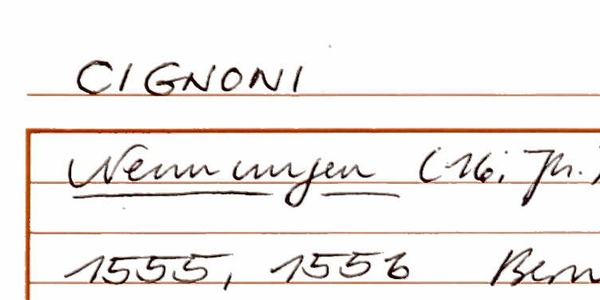 CIGNONI
Nennungen (16. Jh.)
1555, 1556 Bern